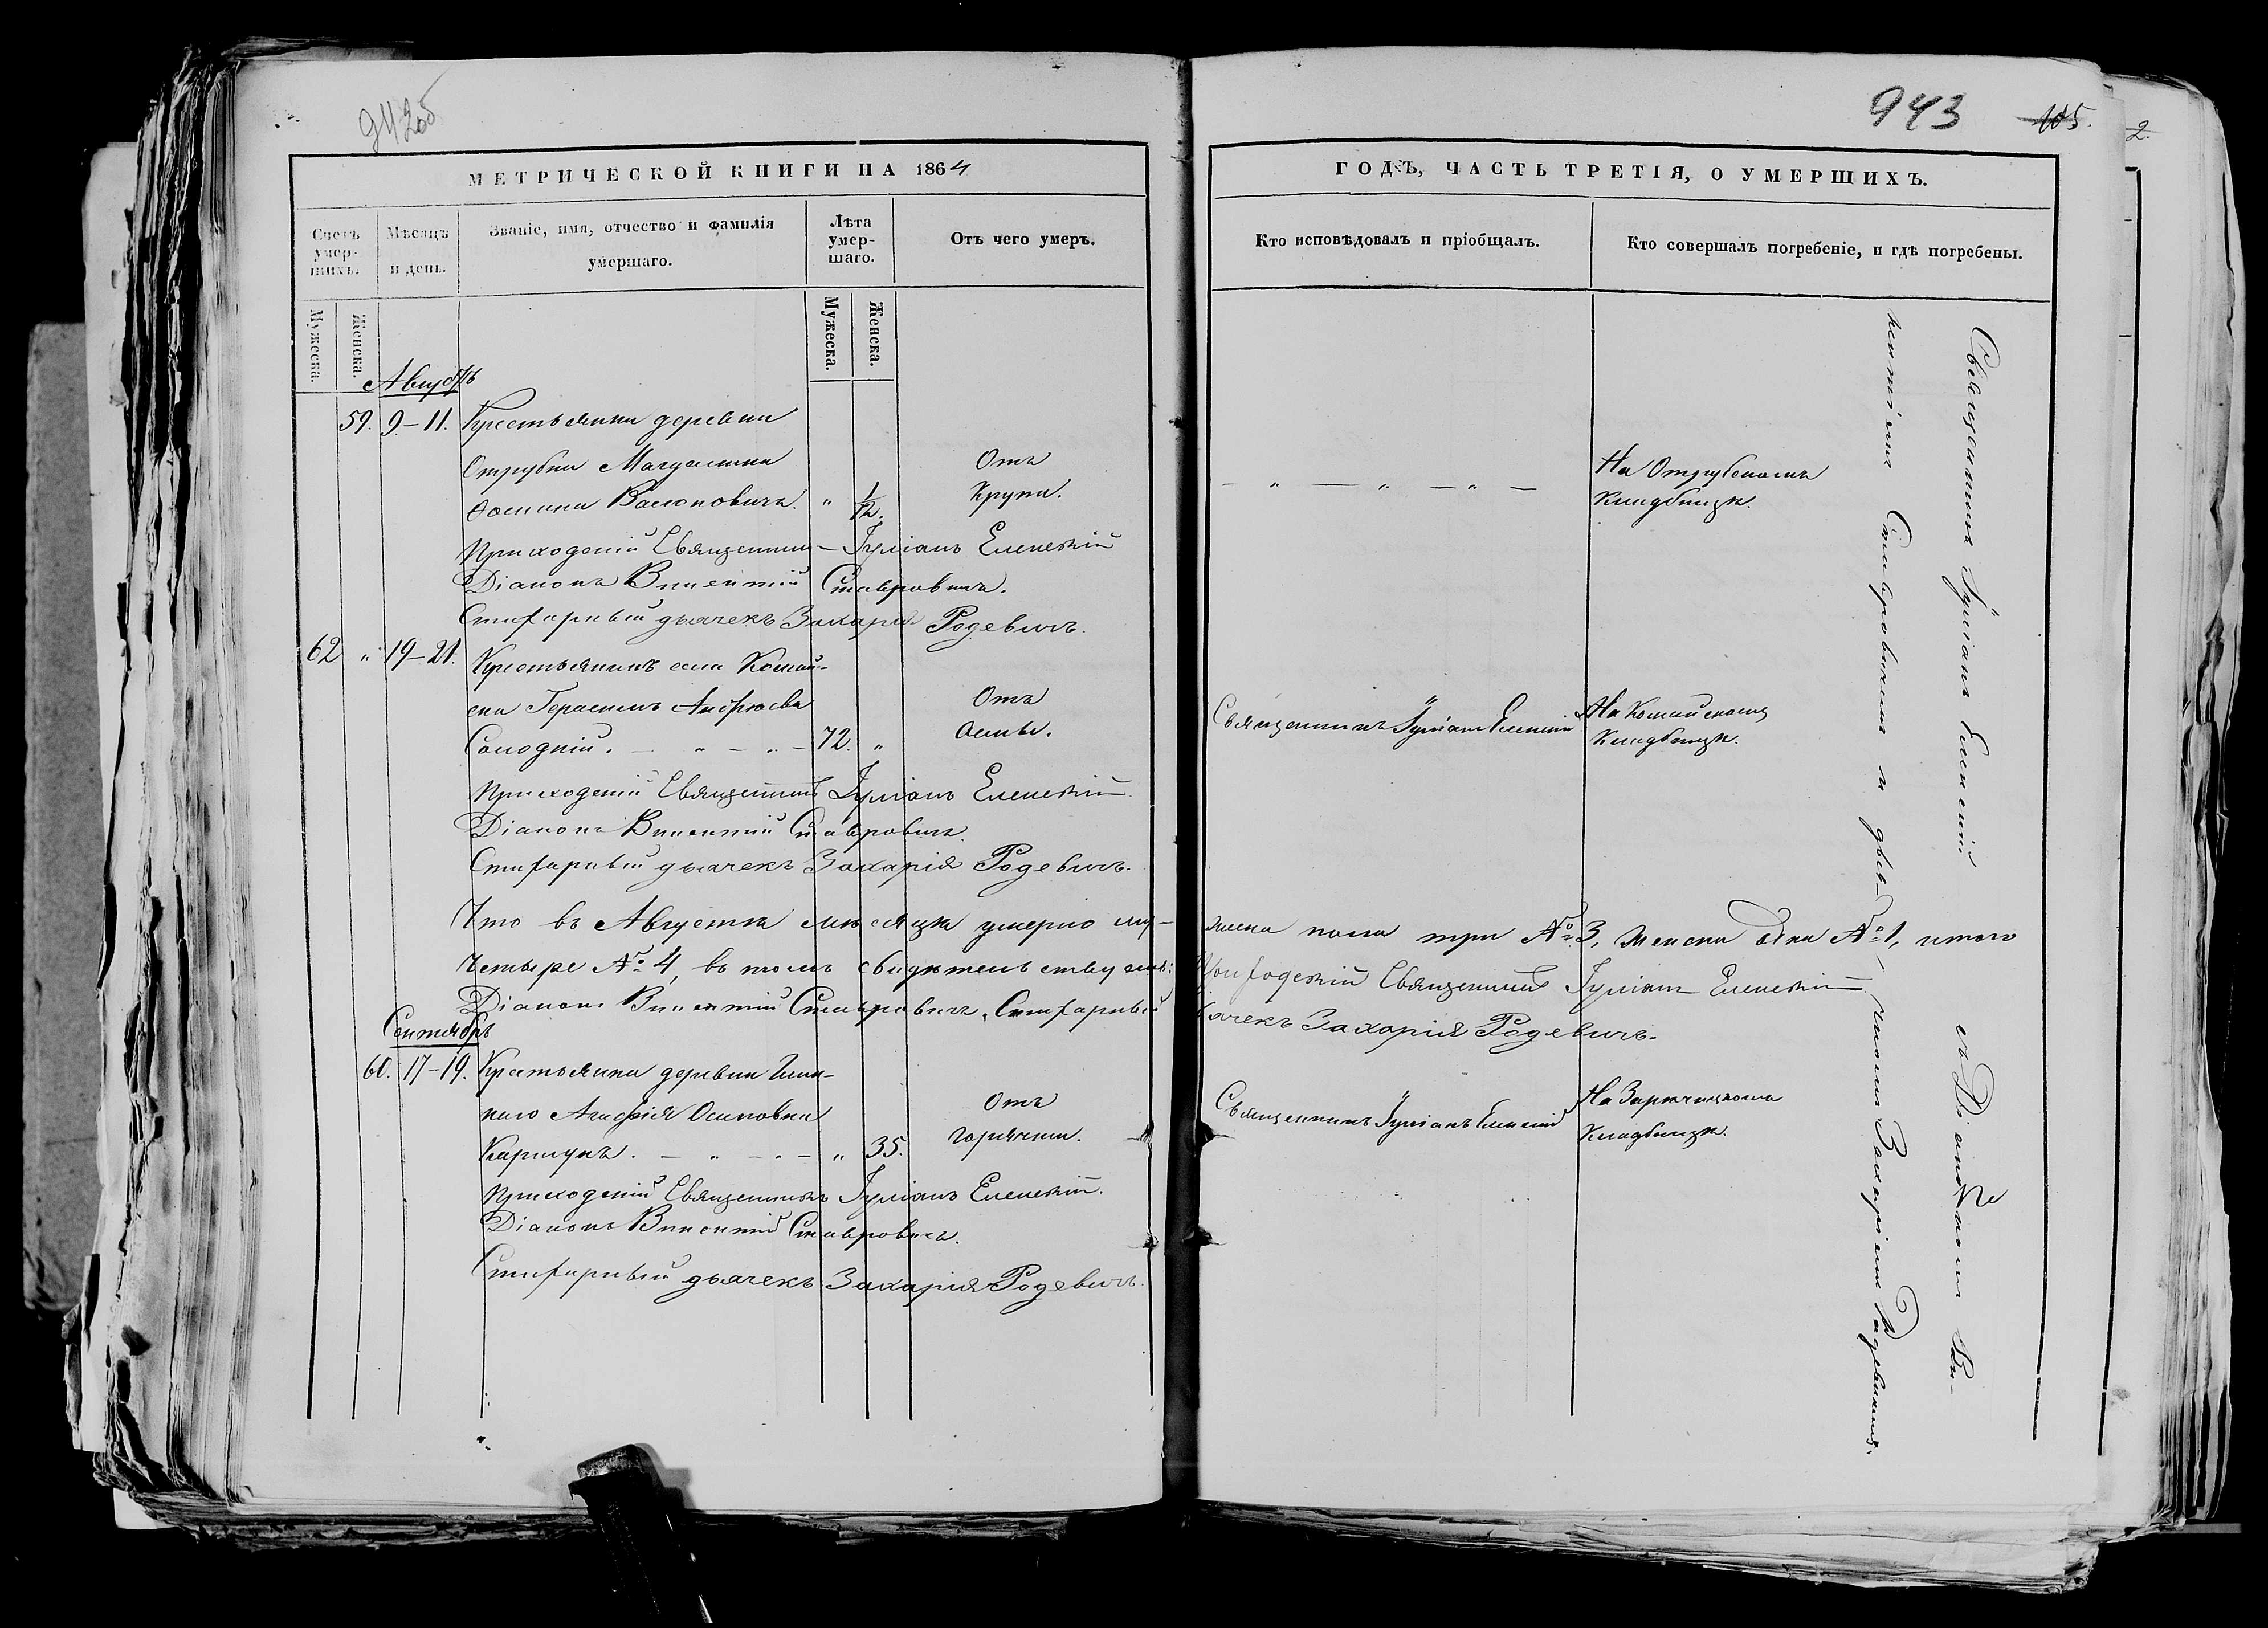 942об
943
105.
2.
МЕТРИЧЕСКОЙ КНИГИ НА 1864
ГОДЪ, ЧАСТЬ ТРЕТІЯ, О УМЕРШИХЪ.
Счетъ умер-шихъ.
Мѣсяцъ и день.
Званіе, имя, отчество и фамилія умершаго.
Лѣта умер-шаго.
Отъ чего умеръ.
Кто исповѣдовалъ и пріобщалъ.
Кто совершалъ погребеніе, и гдѣ погребены.
Мужеска.
Женска.
Мужеска.
Женска.
Августъ
59. 9–11. Крестьянина деревни
Отрубки Магдалина
Ѳомина Васюковича. " 1/12.
Отъ
Крупа.
— " — " — " —
На Отрубскомъ
Кладбищѣ.
Приходскій Священникъ Іуліанъ Еленскій
Діаконъ Викентій Ставровичъ.
Стихарный дьячекъ Захарія Родевичъ.
62 " 19–21. Крестьянинъ села Комай-
ска Герасимъ Андреевъ
Солодкій. — " — " — 72. "
Отъ
Оспы.
Священникъ Іуліанъ Еленскій
На Комайскомъ
Кладбищѣ.
Приходскій Священникъ Іуліанъ Еленскій.
Діаконъ Викентій Ставровичъ
Стихарный дьячекъ Захарія Родевичъ.
Что въ Августѣ мѣсяцѣ умерло му-жеска пола три № 3, женска одна № 1, итого
Четыре № 4, въ томъ свидѣтельствуемъ: Приходскій Священникъ Іуліанъ Еленскій
Діаконъ Викентій Ставровичъ, Стихарный дьячекъ Захарія Родевичъ.
Сентябрь
60. 17–19. Крестьянина деревни
Агафія Осиповна
— " — " — " 35.
Отъ
горячки.
Священникъ Іуліанъ Еленскій
На Зарѣчицкомъ
Кладбищѣ.
Приходскій Священникъ Іуліанъ Еленскій.
Діаконъ Викентій Ставровичъ.
Стихарный дьячекъ Захарія Родевичъ.
Священникъ Іуліанъ Еленскій съ Діакономъ Ви-
кентіемъ Ставровичемъ и дья-
чкомъ Захаріемъ Родевичемъ.